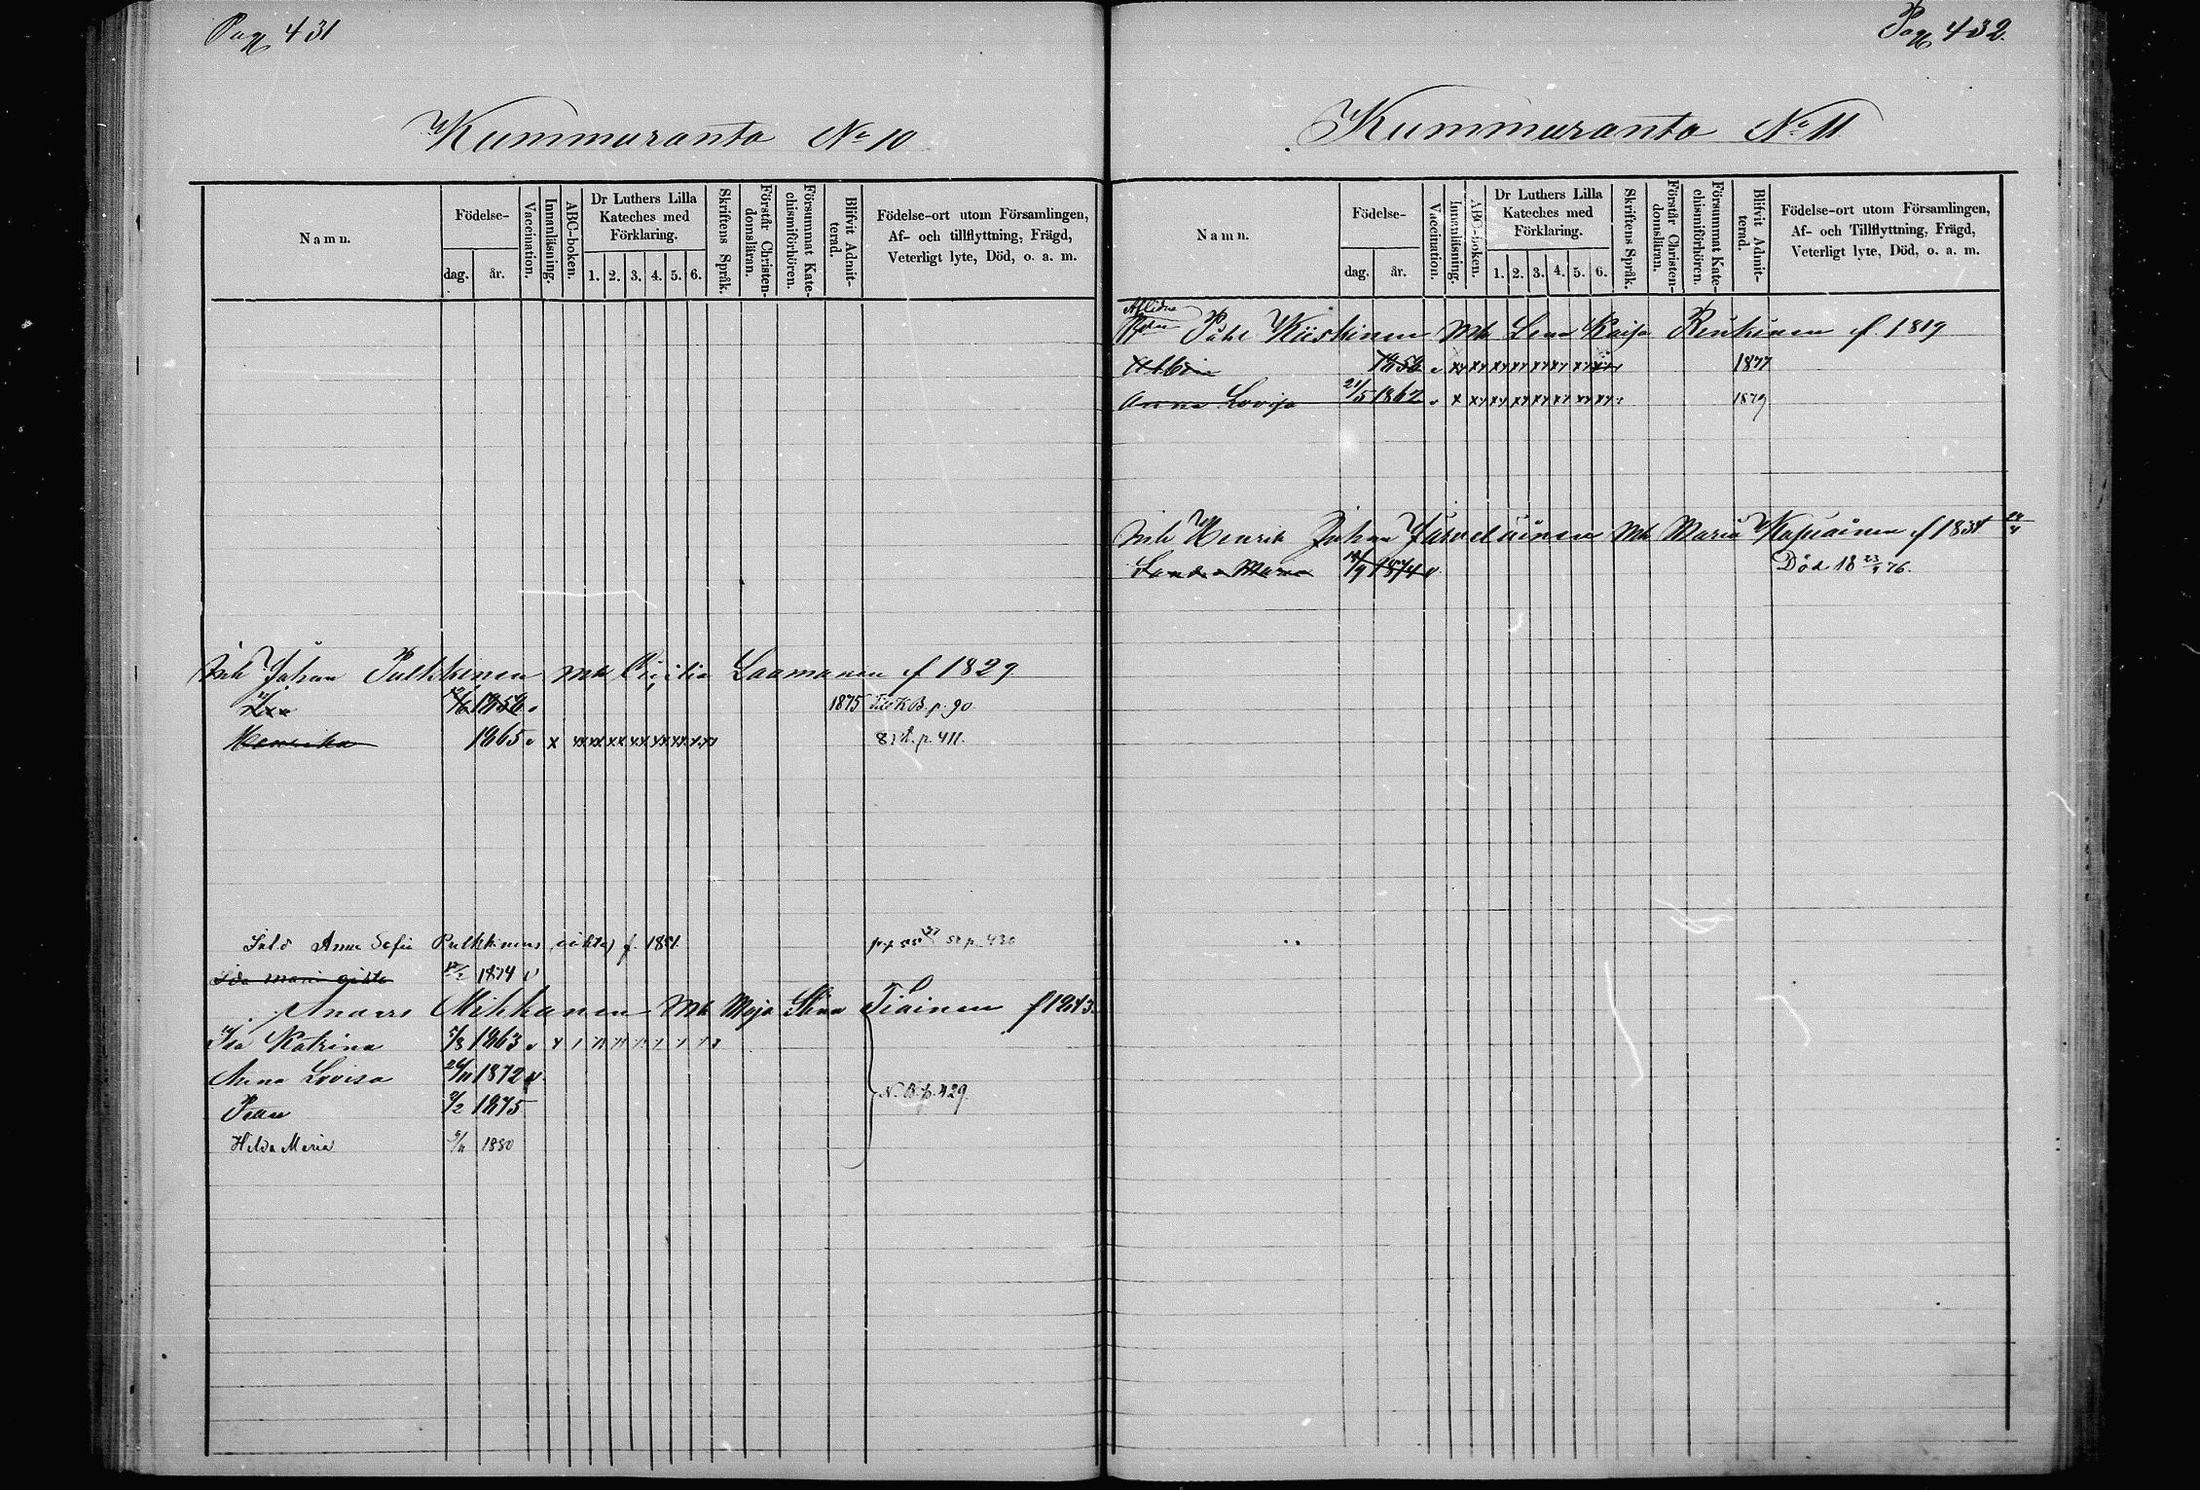 Pag 431
Kummuranta No 10
Namn.
Födelse-
dag.
år.
Vaccination.
Innanläsning.
ABC-boken.
Dr Luthers Lilla
Kateches med
Förklaring.
1. 2. 3. 4. 5. 6.
Skriftens Språk.
Förstår Christen-
domsläran.
Försummat Kate-
chismiförhören.
Blifvit Admit-
terad.
Födelse-ort utom Församlingen,
Af- och tillflyttning, Frägd,
Veterligt lyte, Död, o. a. m.
Inh Johan Pulkkinen Mh Laamanen f 1829
1856 1875 p. 90
1865 p. 411.
Anna Sofia Pulkkinens f. 1851 p. 430
Ida Maria 1874
Anders Mikkanen Mh Maja Stina Tiainen f 1843
Ida Katrina 5/8 1863
Anna Lovisa 26/11 1872
2/2 1875 N. B. p. 429.
Hilda Maria 1880
Pag 432.
Kummuranta No 11
Namn.
Födelse-
dag.
år.
Vaccination.
Innanläsning.
ABC-boken.
Dr Luthers Lilla
Kateches med
Förklaring.
1. 2. 3. 4. 5. 6.
Skriftens Språk.
Förstår Christen-
domsläran.
Försummat Kate-
chismiförhören.
Blifvit Admit-
terad.
Födelse-ort utom Församlingen,
Af- och Tillflyttning, Frägd,
Veterligt lyte, Död, o. a. m.
Aflidne
Påhl Kiiskinen Mh Lena Kaisa f 1819
Albin 1856 1877
Anna Lovisa 21/5 1862 1879
Inh Henrik Johan Mh Maria f 1834
Sandra Maria 1874 Död 18 23/4 76.